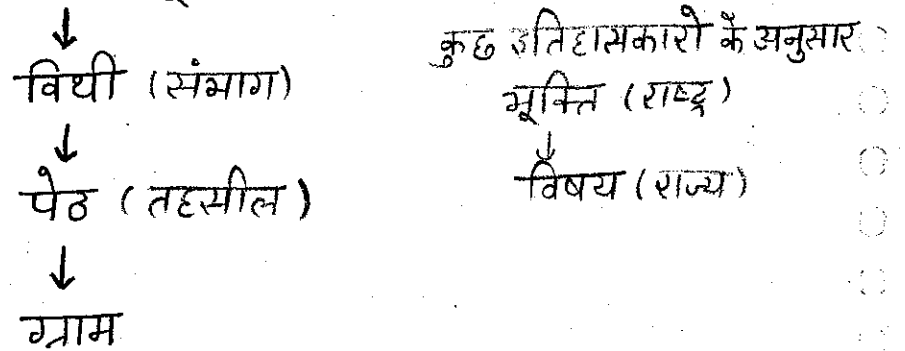 ↓
विथी (संभाग)
↓
पेठ (तहसील)
↓
ग्राम
कुछ इतिहासकारो के अनुसार
भूक्ति (राष्ट्र)
↓
विषय (राज्य)